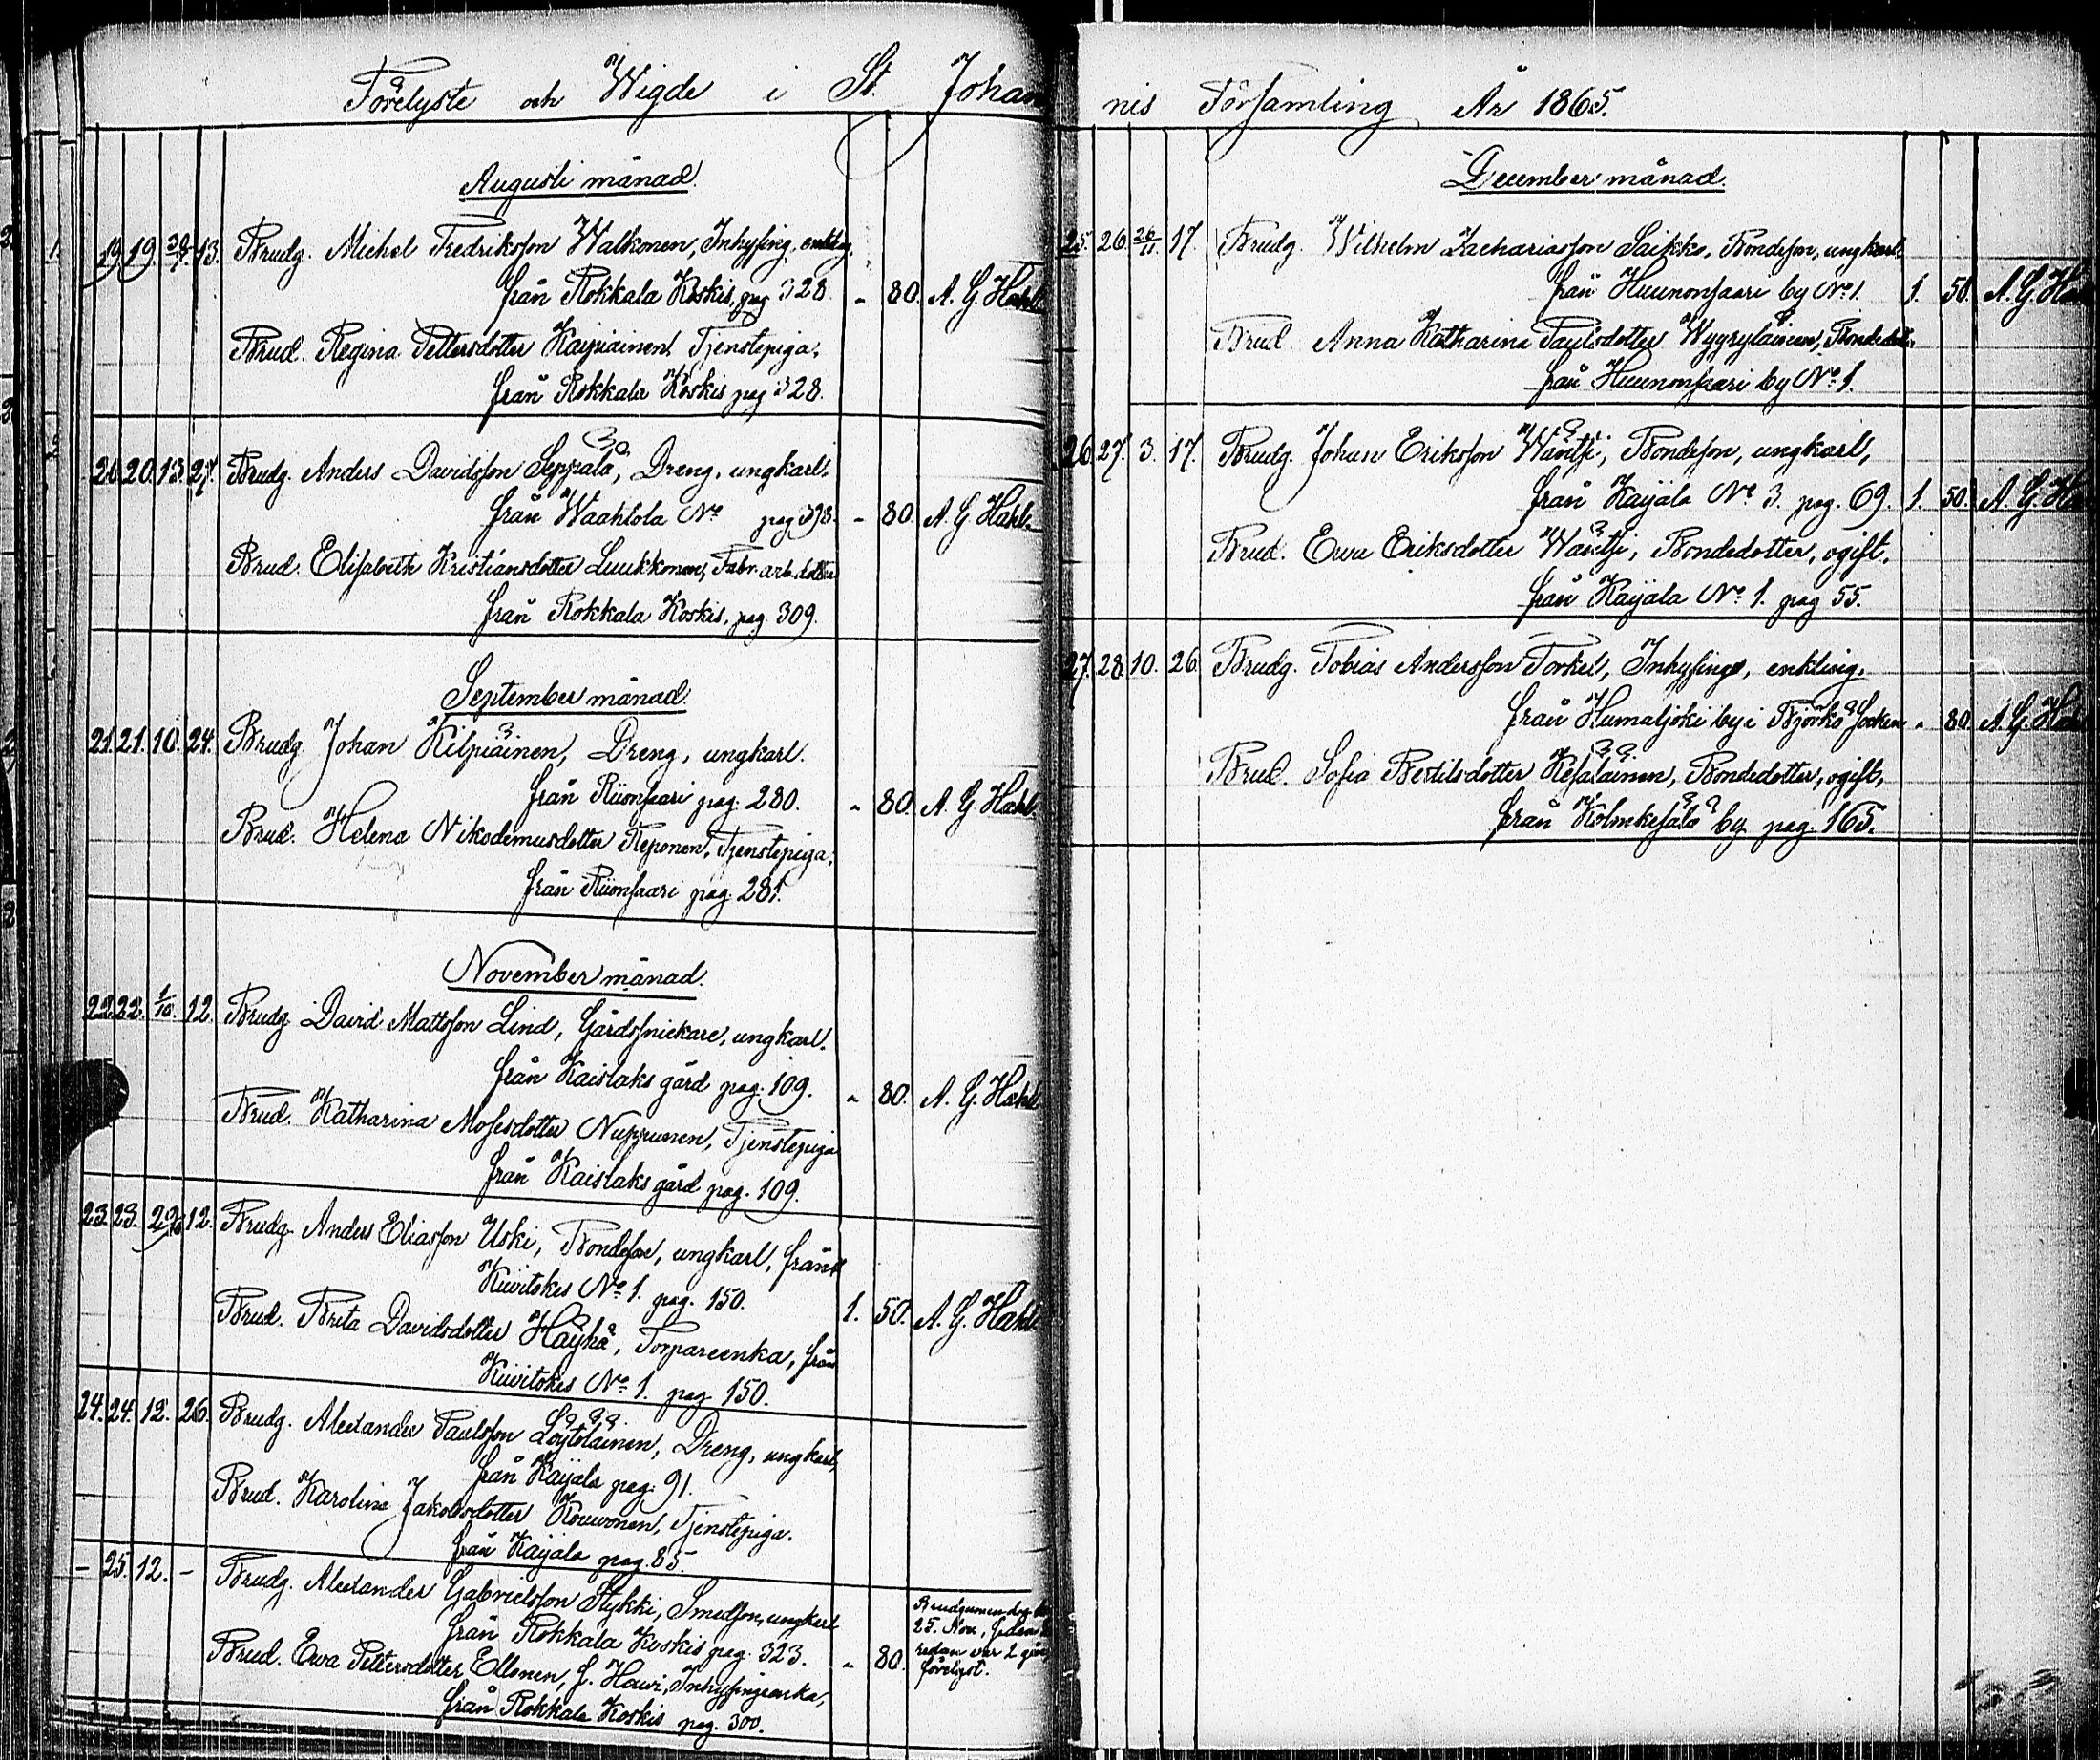 Förelyste och Wigde i St. Johan
Augusti månad.
19. 19. 30/7. 13. Brudg. Michel Fredriksson Walkonen, Inhysing, enkling,
från Rokkala Koskis, pag 328. - 80. A. G. Hahl.
Brud. Regina Pettersdotter Kaipiainen, Tjenstepiga,
från Rokkala Koskis pag 328.
20. 20. 13. 27. Brudg. Anders Davidsson Seppälä, Dreng, ungkarl,
från Waahtola No pag 398. - 80. A. G. Hahl.
Brud. Elisabeth Kristiansdotter Luukkonen, Fabr. arb. dotter
från Rokkala Koskis, pag. 309.
September månad.
21. 21. 10. 24. Brudg. Johan Kilpiäinen, Dreng, ungkarl.
från Riionsaari pag. 280. - 80. A. G. Hahl.
Brud. Helena Nikodemusdotter Reponen, Tjenstepiga,
från Riionsaari pag. 281.
November månad.
22. 22. 1/10. 12. Brudg. David Mattsson Lind, Gårdssnickare, ungkarl.
från Kaislaks gård pag. 109. - 80. A. G. Hahl
Brud. Katharina Mosesdotter Nuppunen, Tjenstepiga
från Kaislaks gård pag. 109.
23. 23. 29/10 12. Brudg. Anders Eliasson Uski, Bondeson, ungkarl, från
Kuvitokes No 1. pag. 150. 1. 50. A. G. Hahl.
Brud. Brita Davidsdotter Häyhä, Torpareenka, från
Kuvitokes No 1. pag 150.
24. 24. 12. 26. Brudg. Alexander Paulsson Löytöläinen, Dreng, ungkarl,
från Kaijala pag. 91.
Brud. Karolina Jakobsdotter Kouwonen, Tjenstepiga.
från Kaijala pag. 85.
- 25. 12. - Brudg. Alexander Gabrielsson Stykki, Smedson, ungkarl
från Rokkala Koskis pag. 323. - 80.
Brud. Ewa Pettersdotter Ellonen, f. Hawi, Inhysingeenka,
från Rokkala Koskis pag. 300.
Brudgummen dog
25. Nov., sedan
redan var 2 gång
förelyst.
nis Församling År 1865.
December månad.
25. 26. 26/11. 17. Brudg. Wilhelm Zachariasson Saikko, Bondeson, ungkarl
från Huunonsaari by No 1. 1. 50. A. G. Ha
Brud. Anna Katharina Paulsdotter Wygryläinen, Bondedotter
från Huunonsaari by No 1.
26. 27. 3. 17. Brudg. Johan Eriksson Wäntsi, Bondeson, ungkarl,
från Kaijala No 3. pag. 69. 1. 50. A. G. Ha
Brud. Ewa Eriksdotter Wäntsi, Bondedotter, ogift.
från Kaijala No 1. pag 55.
27. 28. 10. 26. Brudg. Tobias Andersson Torkel, Inhysing, enkling,
från Humaljoki by i Björkö Socken - 80. A. G. Hahl
Brud. Sofia Bertilsdotter Kesäläinen, Bondedotter, ogift,
från Kolmkesälä by pag. 165.